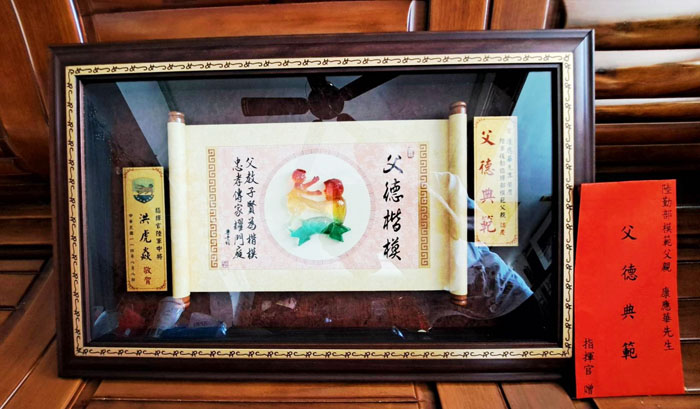 陸勤部模範父親 康應華先生
父德典範
指揮官 贈
父德典範
父德楷模
父教子賢為楷模
忠孝傳家耀門庭
指揮官陸軍中將
洪虎焱 敬賀